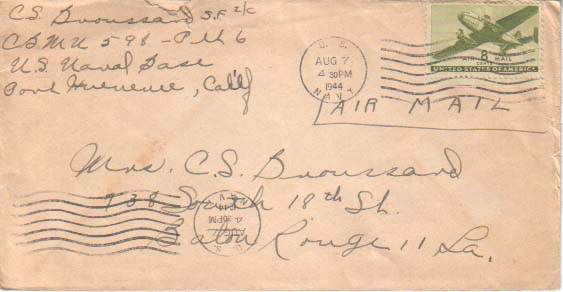 C.S. Broussard S.F. 2/C
CBMU 598 - Plt 6
U.S. Naval Base
Port Hueneme, Calif
U. S.
AUG 7
4 30PM
1944
NAVY
AIR 8 MAIL
CENTS
UNITED STATES OF AMERICA
AIR MAIL
Mrs. C.S. Broussard
738 South 18th St.
Baton Rouge 11 La.
U. S.
AUG 7
4 30PM